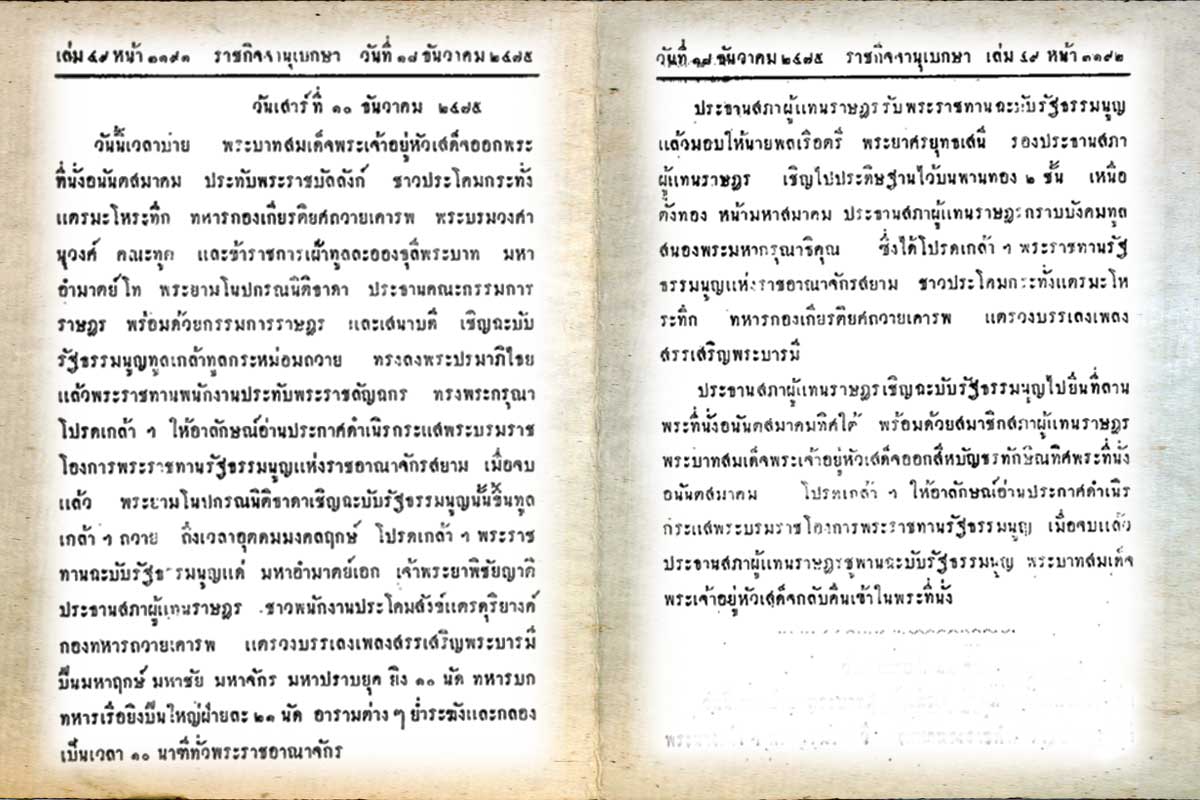 เล่ม ๔๙ หน้า ๓๑๙๑ ราชกิจจานุเบกษา วันที่ ๑๘ ธันวาคม ๒๔๗๕
วันเสาร์ที่ ๑๐ ธันวาคม ๒๔๗๕
วันนี้เวลาบ่าย พระบาทสมเด็จพระเจ้าอยู่หัวเสด็จออกพระ
ที่นั่งอนันตสมาคม ประทับพระราชบัลลังก์ ชาวประโคมกระทั่ง
แตรมะโหระทึก ทหารกองเกียรติยศถวายเคารพ พระบรมวงศา
นุวงศ์ คณะทูต และข้าราชการเฝ้าทูลละอองธุลีพระบาท มหา
อำมาตย์โท พระยามโนปกรณนิติธาดา ประธานคณะกรรมการ
ราษฎร พร้อมด้วยกรรมการราษฎร และเสนาบดี เชิญฉะบับ
รัฐธรรมนูญทูลเกล้าทูลกระหม่อมถวาย ทรงลงพระปรมาภิไธย
แล้วพระราชทานพนักงานประทับพระราชลัญฉกร ทรงพระกรุณา
โปรดเกล้า ฯ ให้อาลักษณ์อ่านประกาศดำเนิรกระแสพระบรมราช
โองการพระราชทานรัฐธรรมนูญแห่งราชอาณาจักรสยาม เมื่อจบ
แล้ว พระยามโนปกรณนิติธาดาเชิญฉะบับรัฐธรรมนูญนั้นขึ้นทูล
เกล้า ฯ ถวาย ถึงเวลาอุดดมมงคลฤกษ์ โปรดเกล้า ฯ พระราช
ทานฉะบับรัฐธรรมนูญแด่ มหาอำมาตย์เอก เจ้าพระยาพิชัยญาติ
ประธานสภาผู้แทนราษฎร ชาวพนักงานประโคมสังข์แตรดุริยางค์
กองทหารถวายเคารพ แตรวงบรรเลงเพลงสรรเสริญพระบารมี
ปืนมหาฤกษ์ มหาชัย มหาจักร มหาปราบยุค ยิง ๑๐ นัด ทหารบก
ทหารเรือยิงปืนใหญ่ฝ่ายละ ๒๑ นัด อารามต่าง ๆ ย่ำระฆังและกลอง
เป็นเวลา ๑๐ นาฑีทั่วพระราชอาณาจักร
วันที่ ๑๘ ธันวาคม ๒๔๗๕ ราชกิจจานุเบกษา เล่ม ๔๙ หน้า ๓๑๙๒
ประธานสภาผู้แทนราษฎรรับพระราชทานฉะบับรัฐธรรมนูญ
แล้วมอบให้นายพลเรือตรี พระยาศรยุทธเสนี รองประธานสภา
ผู้แทนราษฎร เชิญไปประดิษฐานไว้บนพานทอง ๒ ชั้น เหนือ
ตั่งทอง หน้ามหาสมาคม ประธานสภาผู้แทนราษฎรกราบบังคมทูล
สนองพระมหากรุณาธิคุณ ซึ่งได้โปรดเกล้า ฯ พระราชทานรัฐ
ธรรมนูญแห่งราชอาณาจักรสยาม ชาวประโคมกระทั่งแตรมะโห
ระทึก ทหารกองเกียรติยศถวายเคารพ แตรวงบรรเลงเพลง
สรรเสริญพระบารมี
ประธานสภาผู้แทนราษฎรเชิญฉะบับรัฐธรรมนูญไปยืนที่ลาน
พระที่นั่งอนันตสมาคมทิศใต้ พร้อมด้วยสมาชิกสภาผู้แทนราษฎร
พระบาทสมเด็จพระเจ้าอยู่หัวเสด็จออกสีหบัญชรทักษิณทิศพระที่นั่ง
อนันตสมาคม โปรดเกล้า ฯ ให้อาลักษณ์อ่านประกาศดำเนิร
กระแสพระบรมราชโองการพระราชทานรัฐธรรมนูญ เมื่อจบแล้ว
ประธานสภาผู้แทนราษฎรชูพานฉะบับรัฐธรรมนูญ พระบาทสมเด็จ
พระเจ้าอยู่หัวเสด็จกลับคืนเข้าในพระที่นั่ง